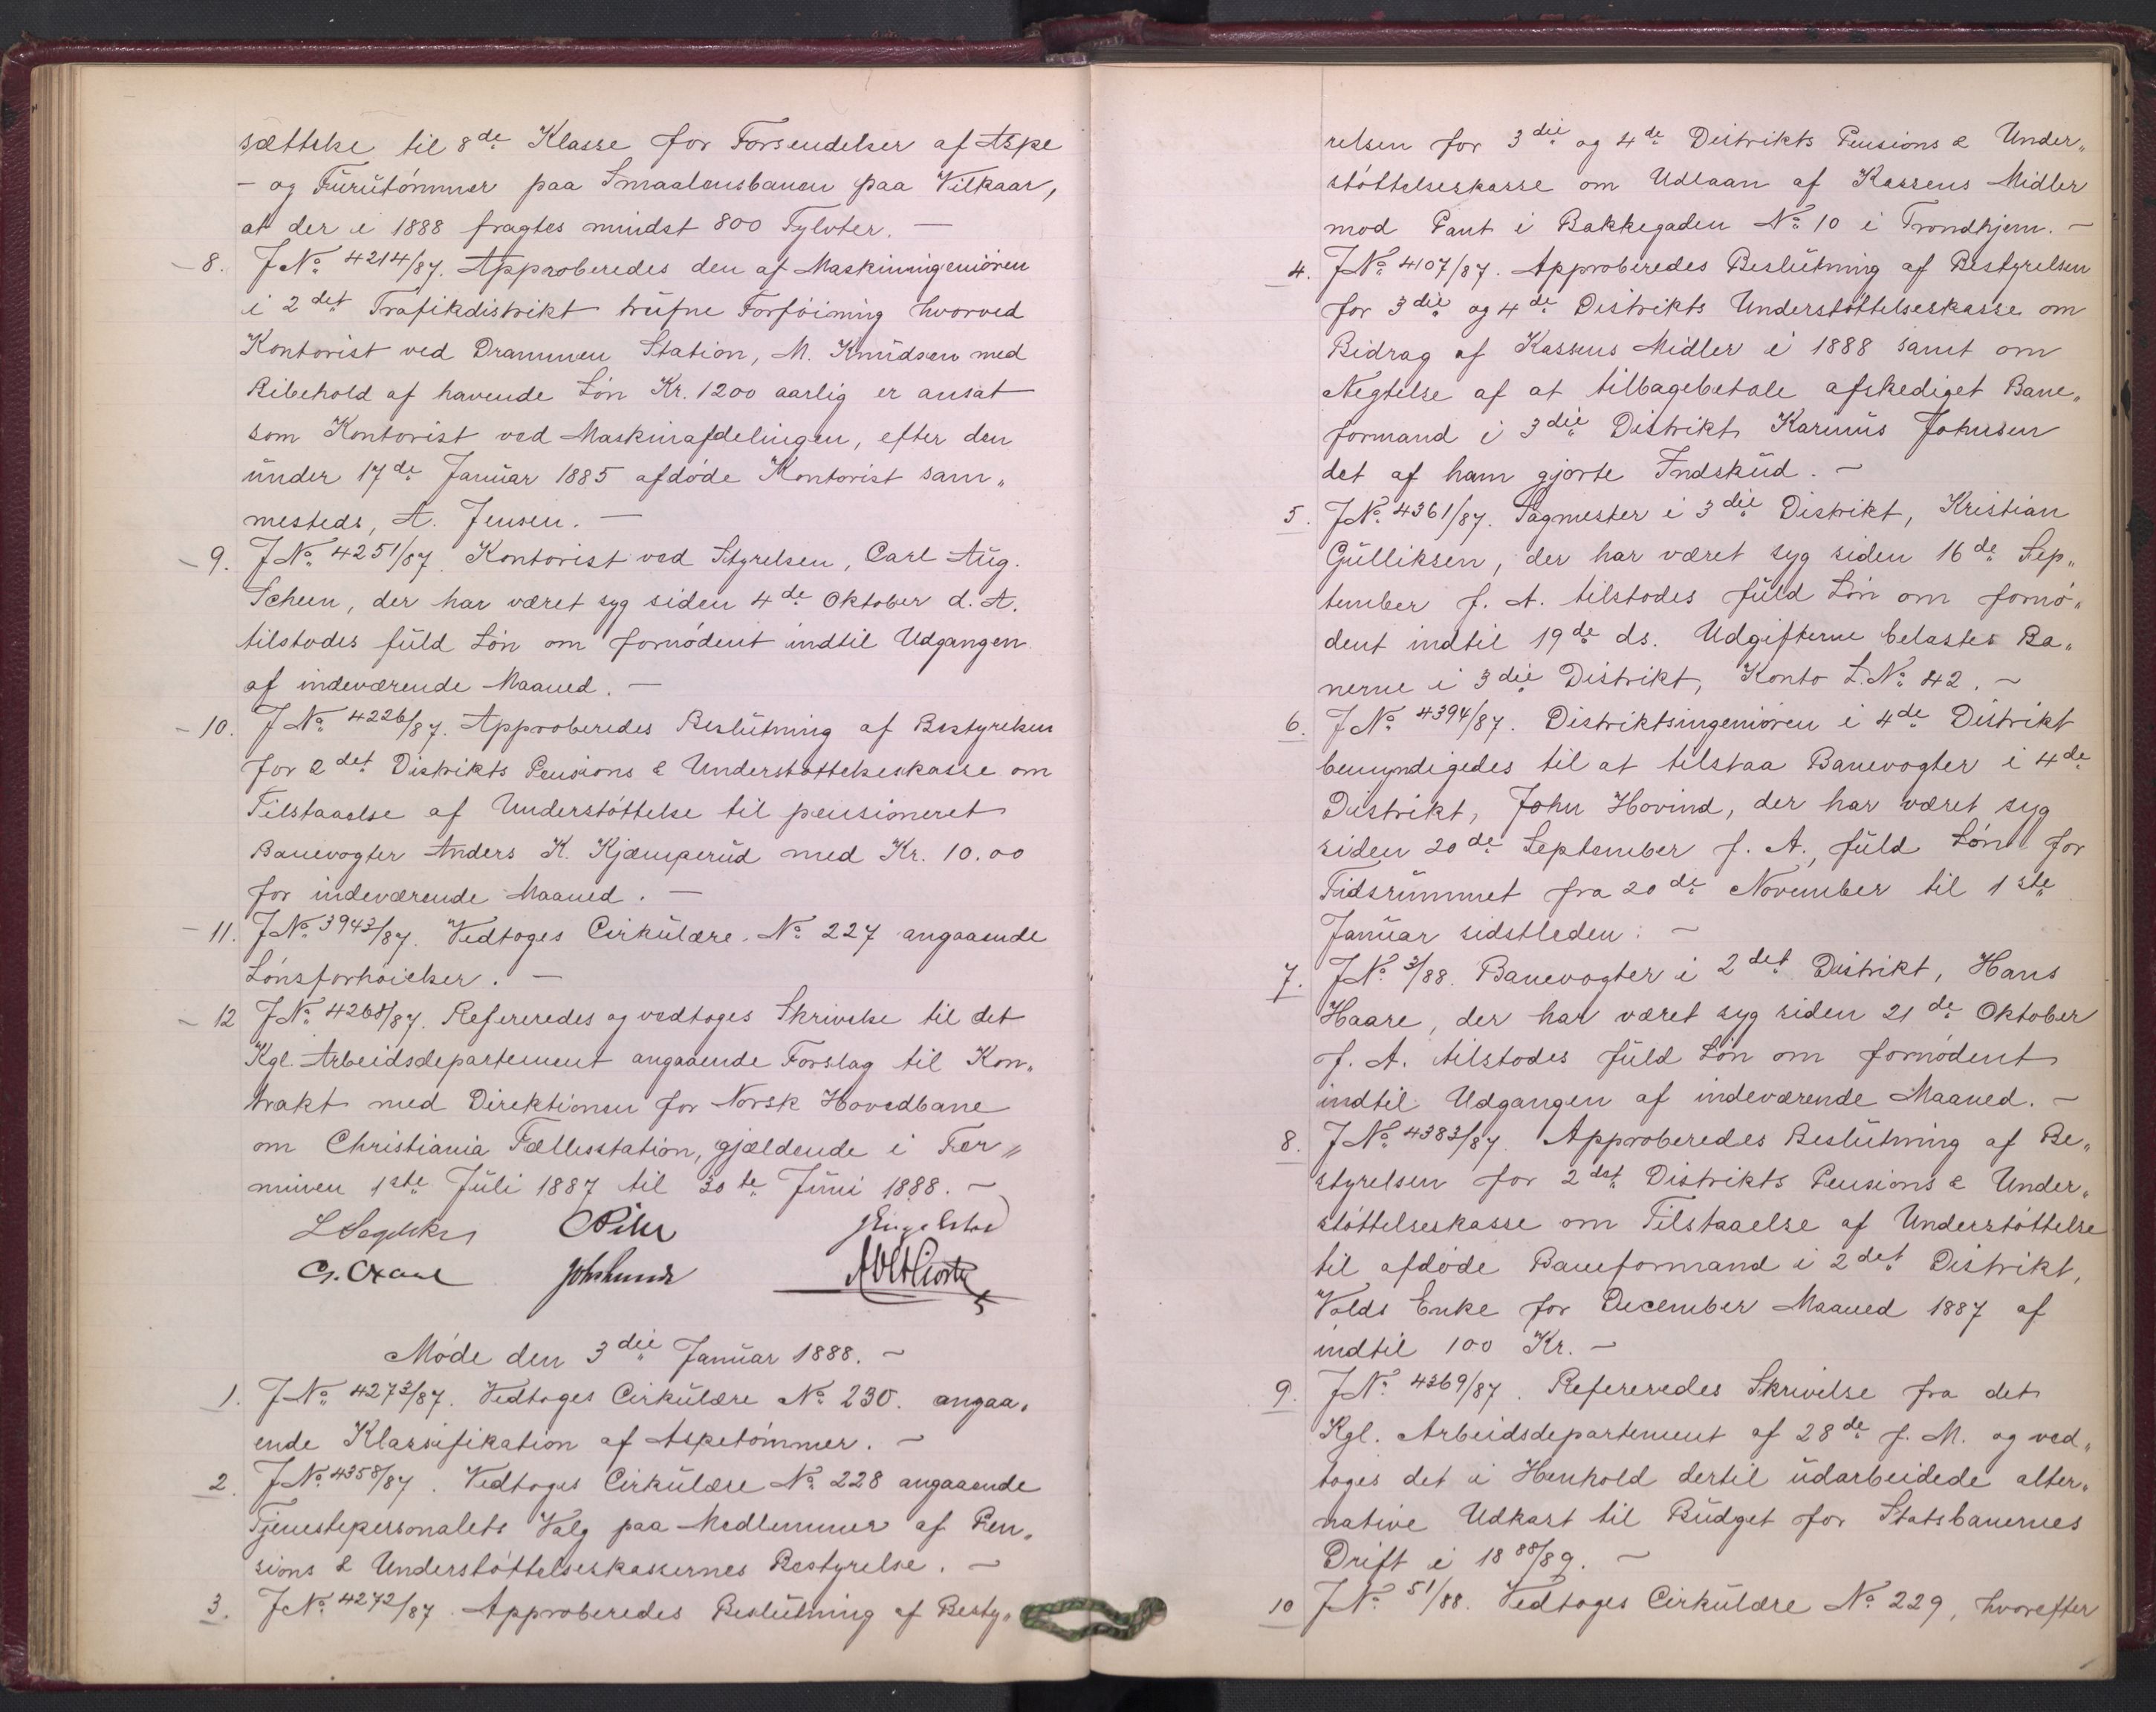 sættelse til 8de Klasse for Forsendelser af Aspe
- og Furutömmer paa Smaalensbanen paa Vilkaar,
at der i 1888 fragtes mindst 800 Tylvter. —
8. J№ 4214/87. Approberedes den af Maskiningeniören
i 2det Trafikdistrikt trufne Forföining hvorved
Kontorist ved Drammen Station, M. Knudsen med
Bibehold af havende Lön Kr. 1200 aarlig er ansat
som Kontorist ved Maskinafdelingen, efter den
under 17de Januar 1885 afdöde Kontorist sam„
mesteds, A. Jensen. —
9. J№ 4251/87. Kontorist ved Styrelsen, Carl Aug.
Scheen, der har været syg siden 4de Oktober d. A.
tilstodes fuld Lön om fornödent indtil Udgangen
af indeværende Maaned. —
10. J№ 4226/87. Approberedes Beslutning af Bestyrelsen
for 2det Distrikts Pensions & Understöttelseskasse om
Tilstaaelse af Understöttelse til pensioneret
Banevogter Anders K. Kjæmperud med Kr. 10.00
for indeværende Maaned. —
11. J№ 3943/87. Vedtoges Cirkulære № 227 angaaende
Lönsforhöielser. —
12 J№ 4268/87. Refereredes og vedtoges Skrivelse til det
Kgl. Arbeidsdepartement angaaende Forslag til Kon„
trakt med Direktionen for Norsk Hovedbane
om Christiania Fællesstation, gjældende i Ter„
minen 1ste Juli 1887 til 30te Juni 1888. —
CPihl
Möde den 3die Januar 1888. —
1. J№ 4273/87. Vedtoges Cirkulære № 230. angaa„
ende Klassifikation af Aspetömmer. —
2. J№ 4358/87. Vedtoges Cirkulære № 228 angaaende
Tjenestepersonalets Valg paa Medlemmer af Pen„
sions & Understöttelseskassernes Bestyrelse. —
3. J№ 4272/87. Approberedes Beslutning af Besty„
relsen for 3die og 4de Distrikts Pensions & Under„
stöttelseskasse om Udlaan af Kassens Midler
mod Pant i Bakkegaden № 10 i Trondhjem. —
4. J№ 4107/87. Approberedes Beslutning af Bestyrelsen
for 3die og 4de Distrikts Understöttelseskasse om
Bidrag af Kassens Midler i 1888 samt om
Negtelse af at tilbagebetale afskediget Bane„
formand i 3die Distrikt Karinus Johnsen
det af ham gjorte Indskud. —
5. J№ 4361/87. Sagmester i 3die Distrikt, Kristian
Gulliksen, der har været syg siden 16de Sep„
tember f. A. tilstodes fuld Lön om fornö„
dent indtil 19de ds. Udgifterne belastes Ba„
nerne i 3die Distrikt, Konto L. № 42. —
6. J№ 4394/87. Distriktsingeniören i 4de Distrikt
bemyndigedes til at tilstaa Banevogter i 4de
Distrikt, John Hovind, der har været syg
siden 20de September f. A., fuld Lön for
Tidsrummet fra 20de November til 1ste
Januar sidstleden. —
7. J№ 3/88. Banevogter i 2det Distrikt, Hans
Haare, der har været syg siden 21de Oktober
f. A. tilstodes fuld Lön om fornödent
indtil Udgangen af indeværende Maaned. —
8. J№ 4383/87. Approberedes Beslutning af Be„
styrelsen for 2det Distrikts Pensions & Under„
stöttelseskasse om Tilstaaelse af Understöttelse
til afdöde Baneformand i 2det Distrikt,
Volds Enke for December Maaned 1887 af
indtil 100 Kr. —
9. J№ 4369/87. Refereredes Skrivelse fra det
Kgl. Arbeidsdepartement af 28de f. M. og ved„
toges det i Henhold dertil udarbeidede alter„
native Udkast til Budget for Statsbanernes
Drift i 1888/89. —
10 J№ 51/88. Vedtoges Cirkulære № 229, hvorefter